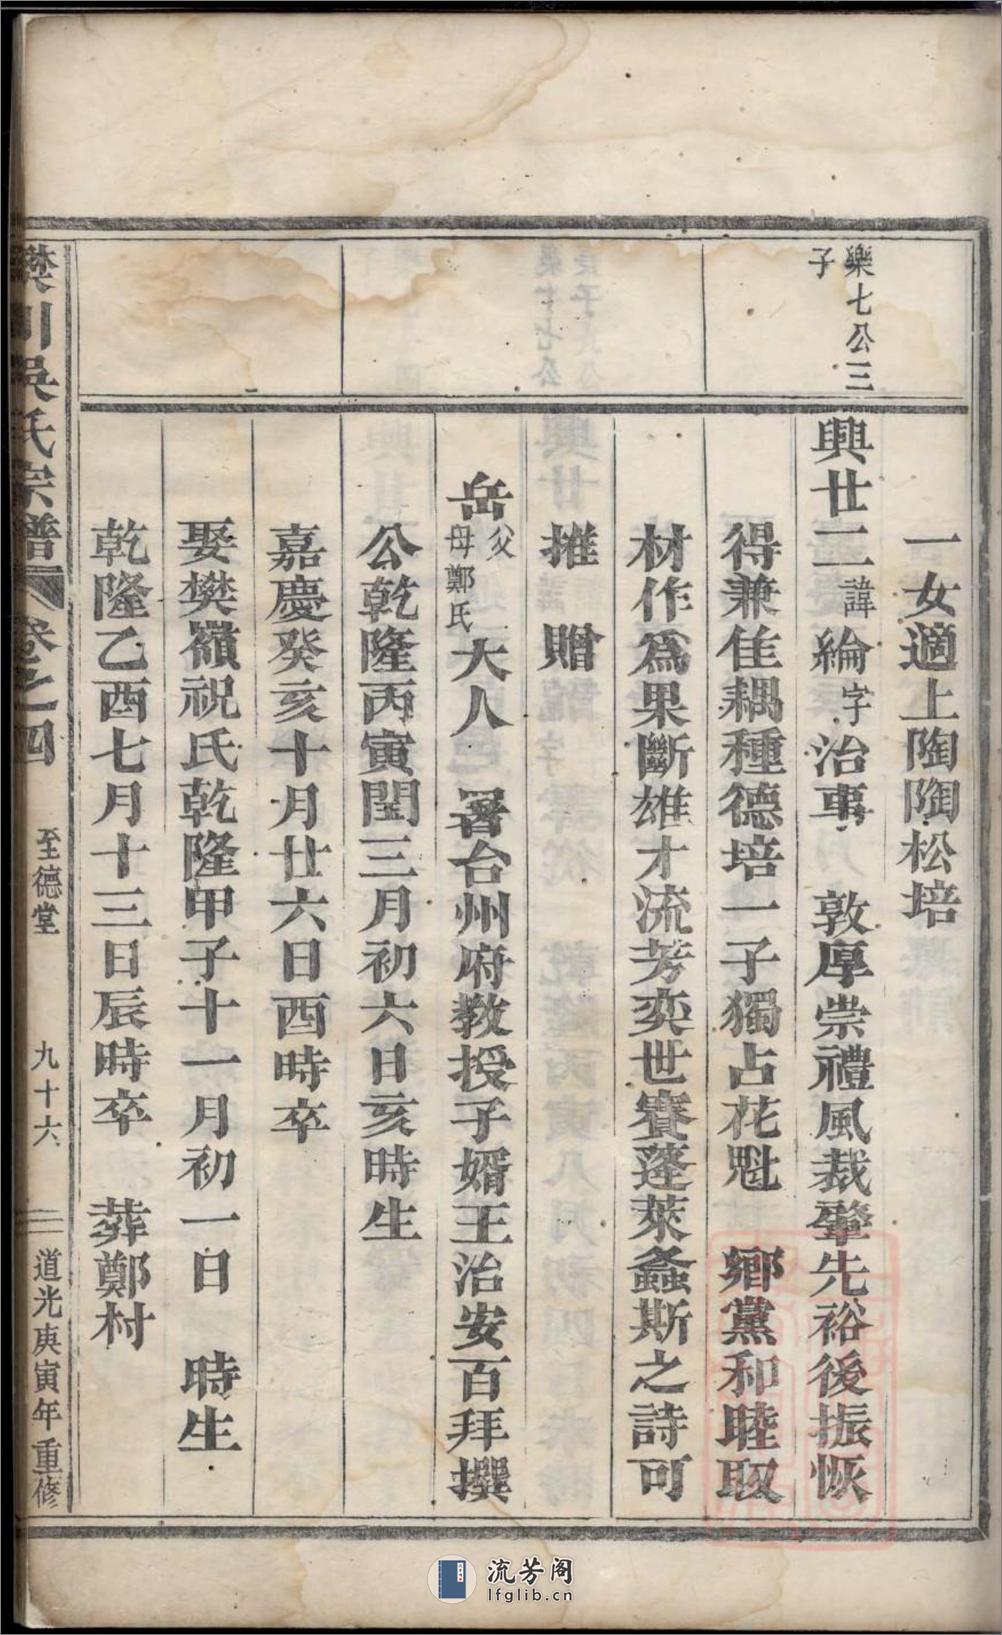 樂七公三
子
一女適上陶陶松培
興廿二諱綸字治事 敦厚崇禮風裁肇先裕後振恢
得兼佳耦種德培一子獨占花魁 鄉黨和睦取
材作爲果斷雄才流芳奕世賽蓬萊螽斯之詩可
摧 贈
岳父母鄭氏大人 署台州府教授子婿王治安百拜撰
公乾隆丙寅閏三月初六日亥時生
嘉慶癸亥十月廿六日酉時卒
娶樊嶺祝氏乾隆甲子十一月初一日 時生
乾隆乙酉七月十三日辰時卒 葬鄭村
樊川吳氏宗譜 卷之四 至德堂 九十六 道光庚寅年重修
流芳阁
lfglib.cn